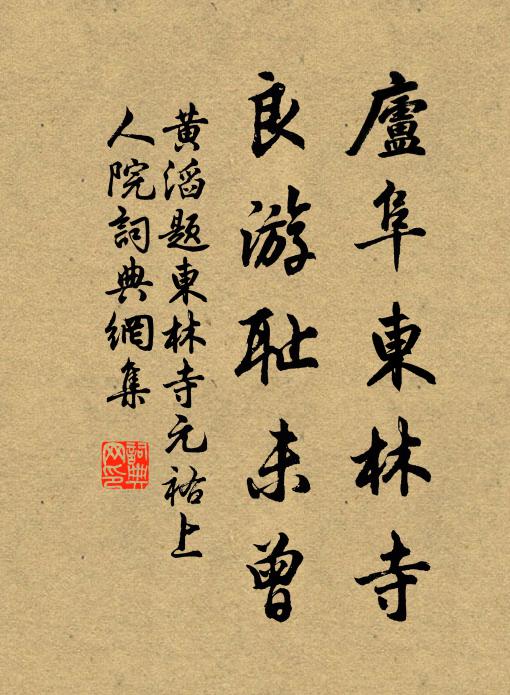 廬阜東林寺
良游耻未曾
黃滔題東林寺元祐上
人院詞典網集
詞典
网印